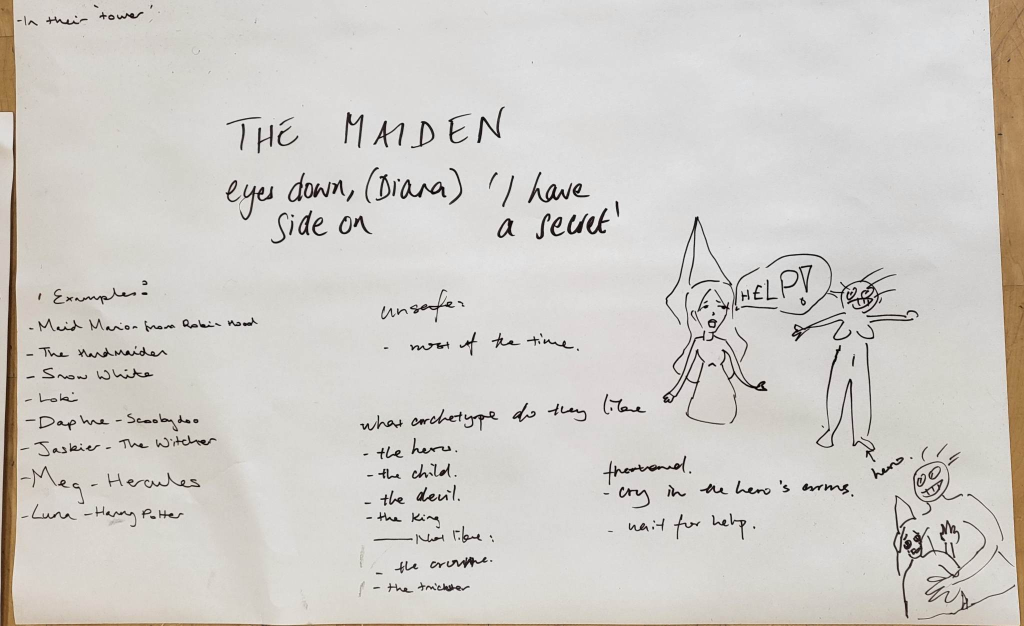 -In their 'tower'
THE MAIDEN
eyes down, (Diana) 'I have
side on a secret'
Examples:
- Maid Marion from Robin Hood
- The Handmaiden
- Snow White
- Loki
- Daphne - Scoobydoo
- Jaskier - The Witcher
- Meg - Hercules
- Luna - Harry Potter
unsafe:
- most of the time.
what archetype do they like
- the hero.
- the child.
- the devil.
- the King
Not like:
- the crone.
- the trickster
HELP!
hero.
- cry in the hero's arms.
- wait for help.